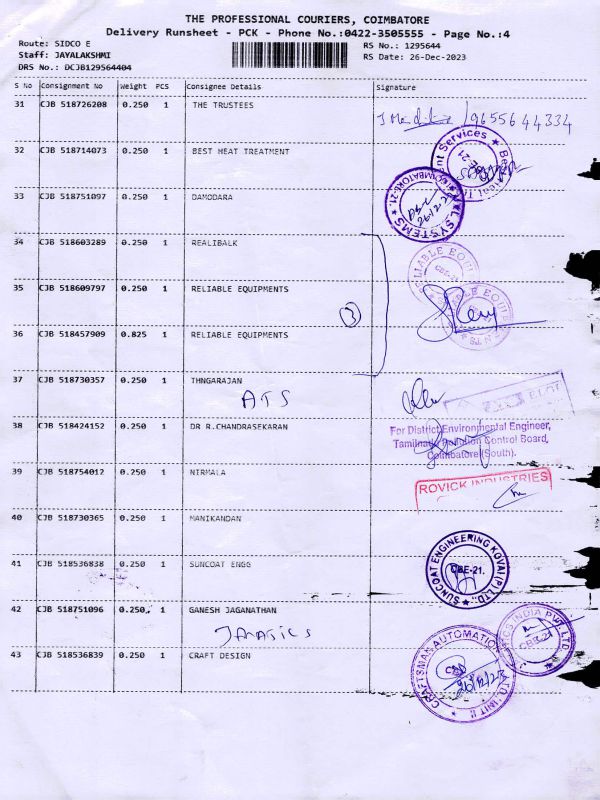 THE PROFESSIONAL COURIERS, COIMBATORE
Delivery Runsheet - PCK - Phone No.:0422-3505555 - Page No.:4
Route: SIDCO E
RS No.: 1295644
Staff: JAYALAKSHMI
RS Date: 26-Dec-2023
DRS No.: DCJB129564404
S No Consignment No Weight PCS Consignee Details Signature
31 CJB 518726208 0.250 1 THE TRUSTEES
9655644334
32 CJB 518714073 0.250 1 BEST HEAT TREATMENT
33 CJB 518751097 0.250 1 DAMODARA
34 CJB 518603289 0.250 1 REALIBALK
35 CJB 518609797 0.250 1 RELIABLE EQUIPMENTS
3
36 CJB 518457909 0.825 1 RELIABLE EQUIPMENTS
37 CJB 518730357 0.250 1 THNGARAJAN
ATS
38 CJB 518424152 0.250 1 DR R.CHANDRASEKARAN
For District Environmental Engineer,
Tamilnadu Pollution Control Board,
Coimbatore (South).
39 CJB 518754012 0.250 1 NIRMALA
ROVICK INDUSTRIES
40 CJB 518730365 0.250 1 MANIKANDAN
41 CJB 518536838 0.250 1 SUNCOAT ENGG
SUNCOAT ENGINEERING KOVAI (P) LTD.,
CBE-21.
42 CJB 518751096 0.250 1 GANESH JAGANATHAN
JANATICS
CBE-21
43 CJB 518536839 0.250 1 CRAFT DESIGN
CRAFTSMAN AUTOMATION
26/12/23